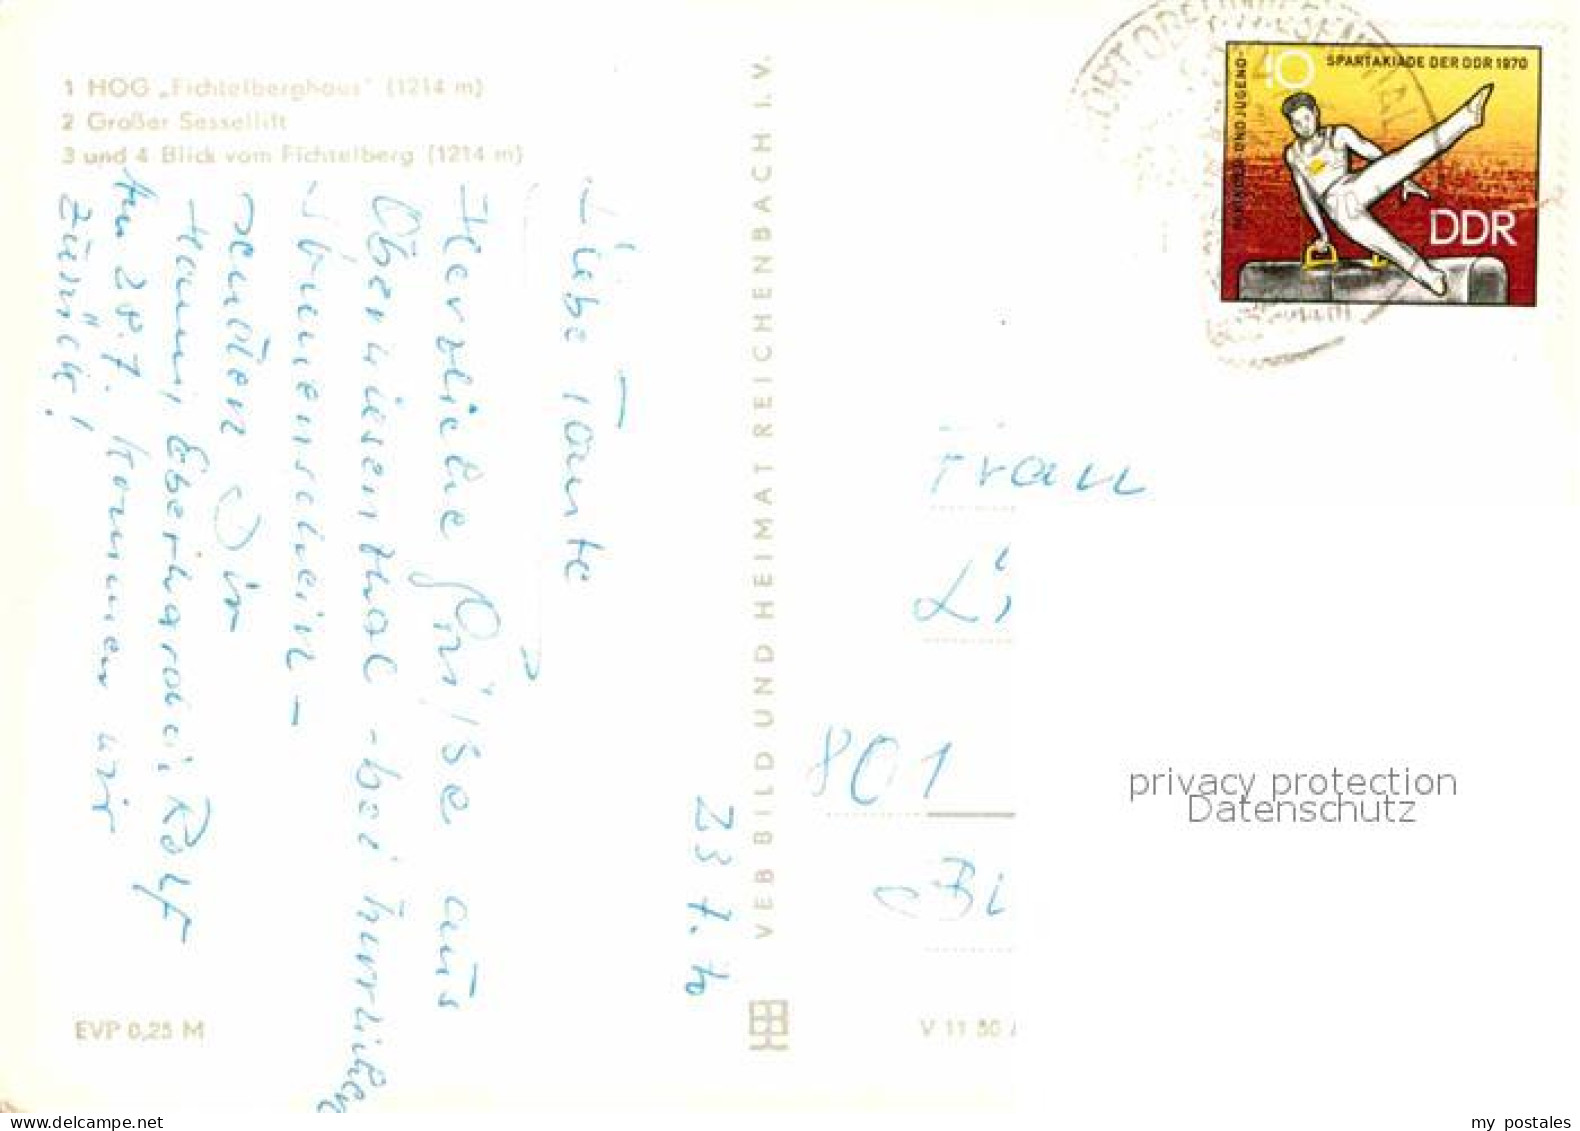 1 HOG „Fichtelberghaus" (1214 m)
2 Großer Sessellift
3 und 4 Blick vom Fichtelberg (1214 m)
23.7.70
Liebe Tante
Herzliche Grüße aus
Oberwiesenthal - bei herrlichen
Sonnenschein -
senden Dir
Hanni, Eberhard, Rolf
Am 28.7. kommen wir
zurück!
VEB BILD UND HEIMAT REICHENBACH I. V.
EVP 0,25 M
V 11 50
10
SPARTAKIADE DER DDR 1970
KINDER- UND JUGEND-
DDR
Frau
Li
801
Bi
privacy protection
Datenschutz
delcampe.net
my postales